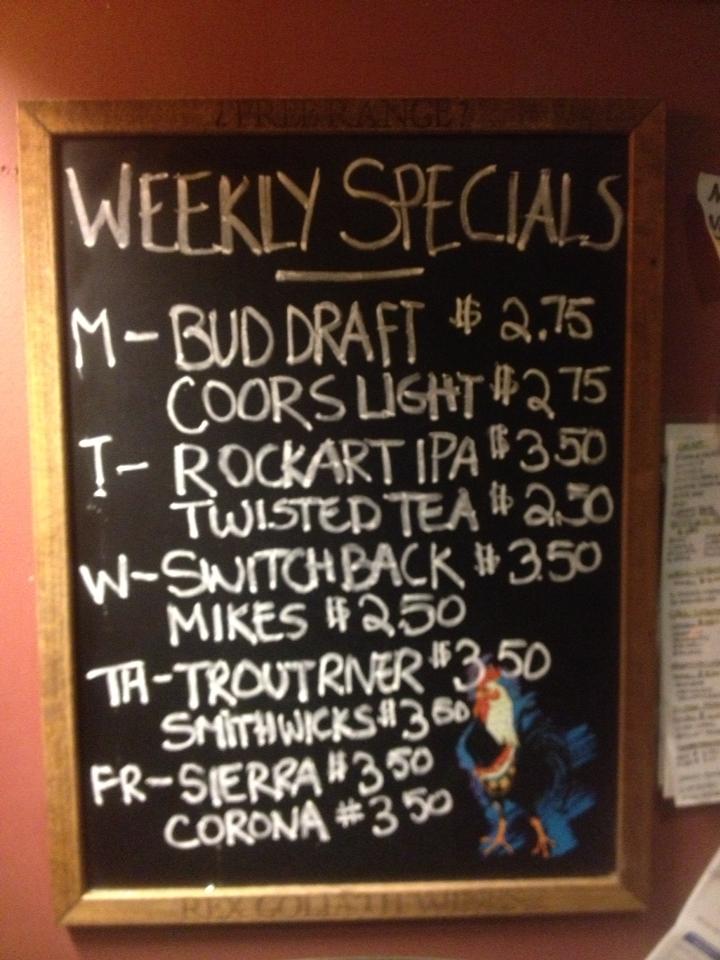 ?FREE RANGE?
WEEKLY SPECIALS
M- BUD DRAFT $ 2.75
COORS LIGHT $2 75
T- ROCKART IPA $3.50
TWISTED TEA $ 2.50
W-SWITCHBACK $3.50
MIKES $2.50
TH-TROUT RIVER $3.50
SMITHWICKS $3 50
FR-SIERRA $3 50
CORONA $3 50
REX GOLIATH WINES